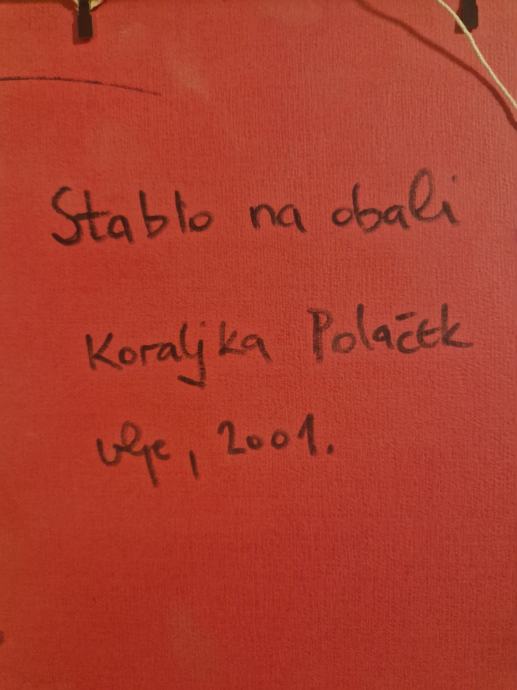 Stablo na obali
Koraljka Polaček
ulje, 2001.